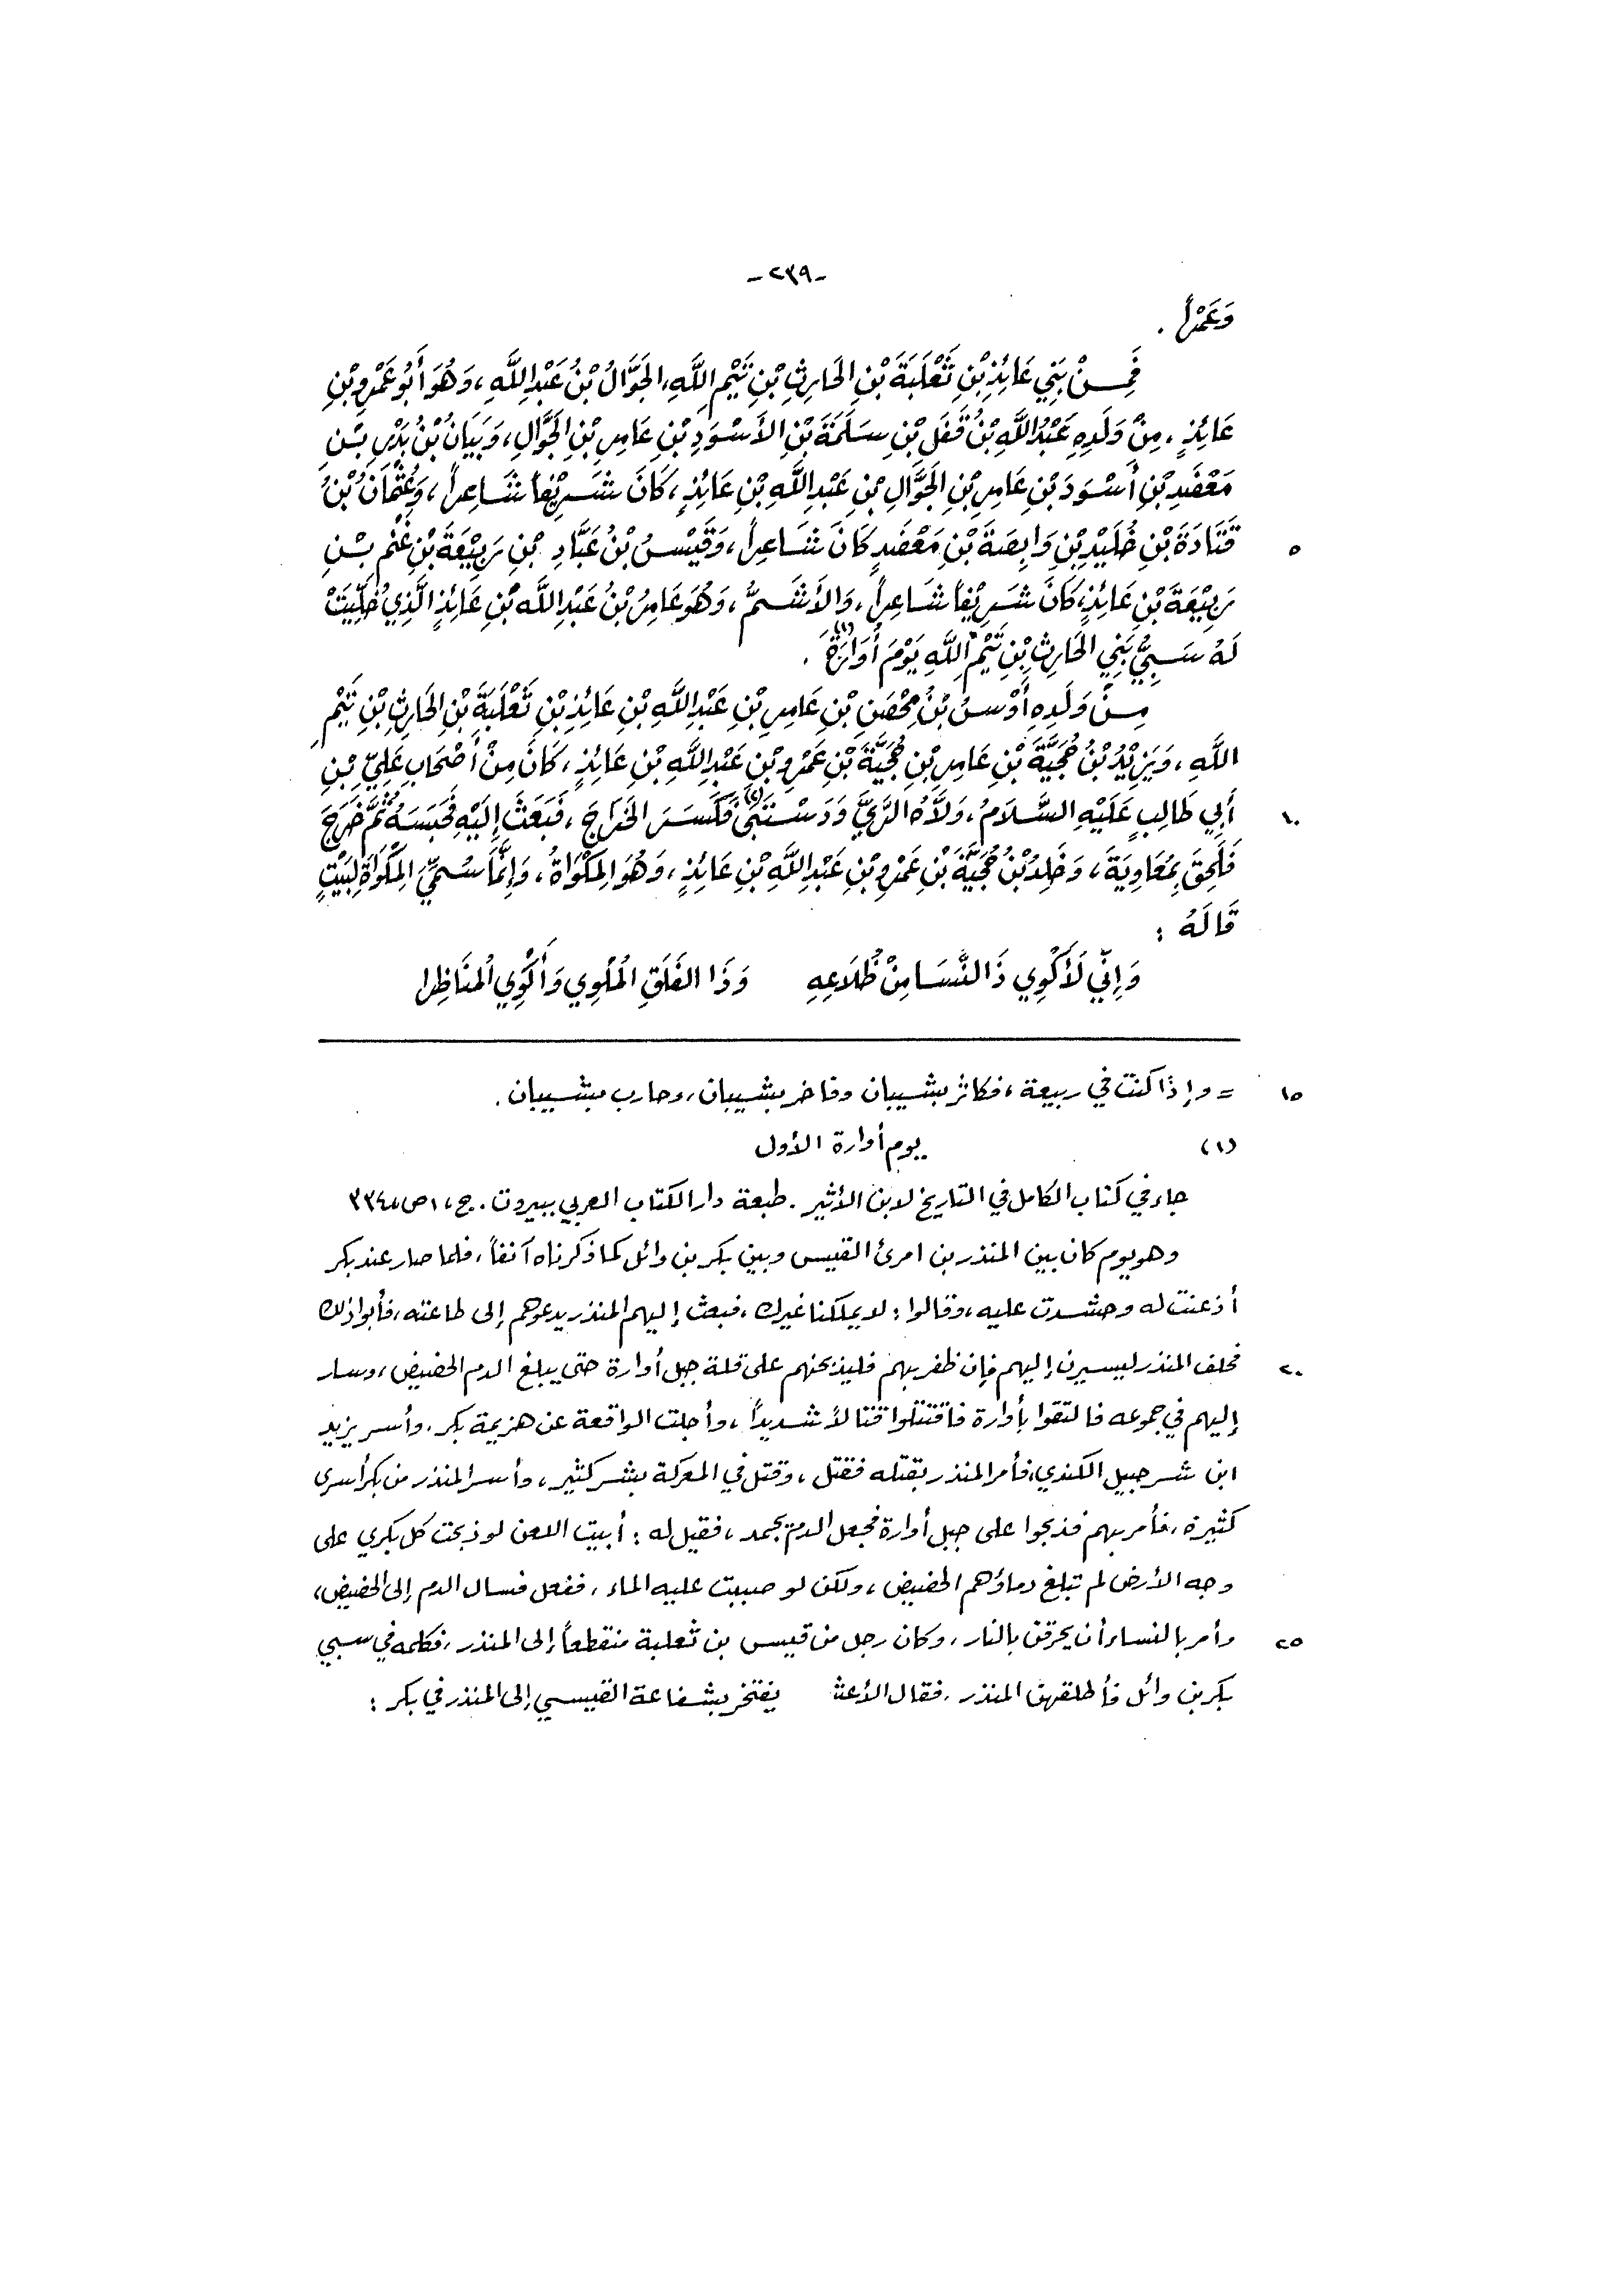 -٢٣٩-
وَعَمْراً .
فَمِنْ بَنِي عَائِذِ بْنِ ثَعْلَبَةَ بْنِ الحَارِثِ بْنِ تَيْمِ اللَّهِ، الجَوَّالُ بْنُ عَبْدِ اللَّهِ، وَهُوَ أَبُو عَمْرِو بْنِ
عَائِذٍ، مِنْ وَلَدِهِ عَبْدُ اللَّهِ بْنُ قَفَلِ بْنِ سَلَمَةَ بْنِ الأَسْوَدِ بْنِ عَامِرِ بْنِ الجَوَّالِ، وَبَيَانُ بْنُ بَدْرِ بْنِ
مَعْضَدِ بْنِ أَسْوَدَ بْنِ عَامِرِ بْنِ الجَوَّالِ بْنِ عَبْدِ اللَّهِ بْنِ عَائِذٍ، كَانَ شَرِيْفاً شَاعِراً، وَعُثْمَانُ بْنُ
٥ قَتَادَةَ بْنِ خُلَيْدِ بْنِ وَابِصَةَ بْنِ مَعْضَدٍ كَانَ شَاعِراً، وَقَيْسُ بْنُ عَبَّادِ بْنِ رَبِيْعَةَ بْنِ غَنْمِ بْنِ
رَبِيْعَةَ بْنِ عَائِذٍ، كَانَ شَرِيْفاً شَاعِراً، وَالأَشَمُّ، وَهُوَ عَامِرُ بْنُ عَبْدِ اللَّه بْنِ عَائِذٍ الَّذِي خُلِّيَتْ
لَهُ سَبِيُّ بَنِي الحَارِثِ بْنِ تَيْمِ اللَّهِ يَوْمَ أُوَارَةَ (١) .
مِنْ وَلَدِهِ أَوْسُ بْنُ مِحْصَنِ بْنِ عَامِرِ بْنِ عَبْدِ اللَّهِ بْنِ عَائِذِ بْنِ ثَعْلَبَةَ بْنِ الحَارِثِ بْنِ تَيْمِ
اللَّهِ، وَيَزِيْدُ بْنُ حُجَيَّةَ بْنِ عَامِرِ بْنِ حُجَيَّةَ بْنِ عَمْرِو بْنِ عَبْدِ اللَّهِ بْنِ عَائِذٍ، كَانَ مِنْ أَصْحَابِ عَلِيِّ بْنِ
١٠ أَبِي طَالِبٍ عَلَيْهِ السَّلاَمُ، وَلاَّهُ الرَّيَّ وَدَسْتَبَى (٢) فَكَسَرَ الخَرَاجَ، فَبَعَثَ إِلَيْهِ فَحَبَسَهُ ثُمَّ خَرَجَ
فَلَحِقَ بِمُعَاوِيَةَ، وَخَلِدُ بْنُ حُجَيَّةَ بْنِ عَمْرِو بْنِ عَبْدِ اللَّهِ بْنِ عَائِذٍ، وَهُوَ المِكْوَاةُ، وَإِنَّمَا سُمِّيَ المِكْوَاةَ لِبَيْتٍ
قَالَهُ :
وَإِنِّي لَأَكْوِي ذَا النَّسَا مِنْ ظُلاَعِهِ وَذَا الغَلَقِ المَلْوِي وَأَكْوِي المنَاظِرا
١٥ = وإذا كنت في ربيعة، فكاثر بشيبان وفاخر بشيبان، وحارب بشيبان .
(١) يوم أوارة الأول
جاء في كتاب الكامل في التاريخ لابن الأثير . طبعة دار الكتاب العربي ببيروت . ج، ١ ص، ٣٣٤
وهو يوم كان بين المنذر بن امرئ القيس وبين بكر بن وائل كما ذكرناه آنفاً، فلما صار عند بكر
أذعنت له وحشدت عليه، وقالوا : لا يملكنا غيرك، فبعث إليهم المنذر يدعوهم إلى طاعته، فأبوا ذلك
٢٠ فحلف المنذر ليسيرن إليهم فإن ظفر بهم فليذبحنهم على قلة جبل أوارة حتى يبلغ الدم الحضيض، وسار
إليهم في جموعه فالتقوا بأوارة فاقتتلوا قتالاً شديداً، وأجلت الواقعة عن هزيمة بكر، وأسر يزيد
ابن شرحبيل الكندي، فأمر المنذر بقتله فقتل، وقتل في المعركة بشر كثير، وأسر المنذر من بكر أسرى
كثيرة، فأمر بهم فذبحوا على جبل أوارة فجعل الدم يجمد، فقيل له : أبيت اللعن لو ذبحت كل بكري على
وجه الأرض لم تبلغ دماؤهم الحضيض، ولكن لو صببت عليه الماء، ففعل فسال الدم إلى الحضيض،
٢٥ وأمر بالنساء أن يحرقن بالنار، وكان رجل من قيس بن ثعلبة منقطعاً إلى المنذر، فكلمه في سبي
بكر بن وائل فأطلقهن المنذر، فقال الأعشى يفتخر بشفاعة القيسي إلى المنذر في بكر :